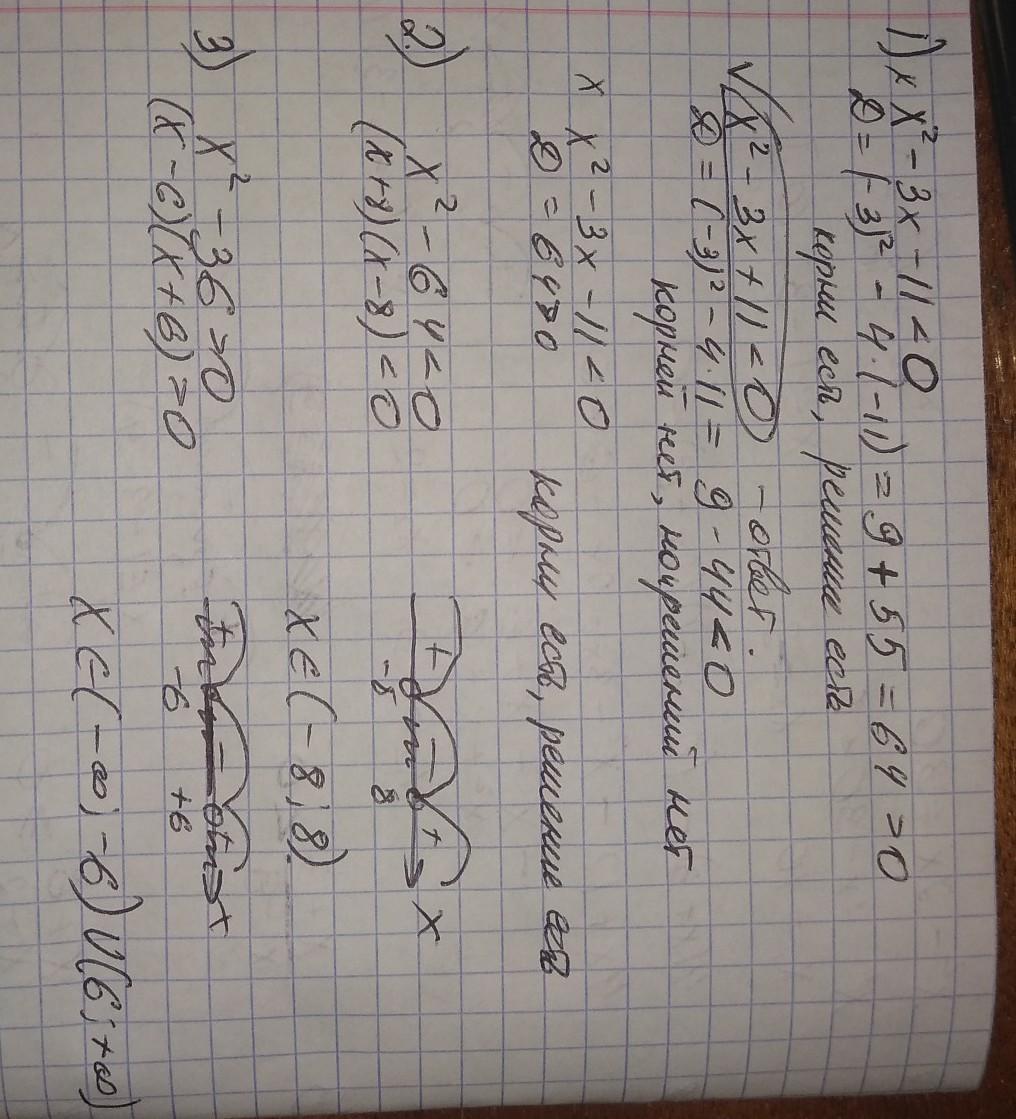 1) x x² - 3x - 11 < 0
D = (-3)² - 4·(-11) = 9 + 55 = 64 > 0
корни есть, решение есть
√ x² - 3x + 11 < 0 - ответ.
D = (-3)² - 4·11 = 9 - 44 < 0
корней нет, и решений нет
x x² - 3x - 11 < 0
D = 64 > 0 корни есть, решение есть
2.) x² - 64 < 0
(x+8)(x-8) < 0
+ - + x
-8 8
x ∈ (-8; 8)
3) x² - 36 > 0
(x-6)(x+6) > 0
+ - +
-6 +6
x ∈ (-∞; -6) U (6; +∞)